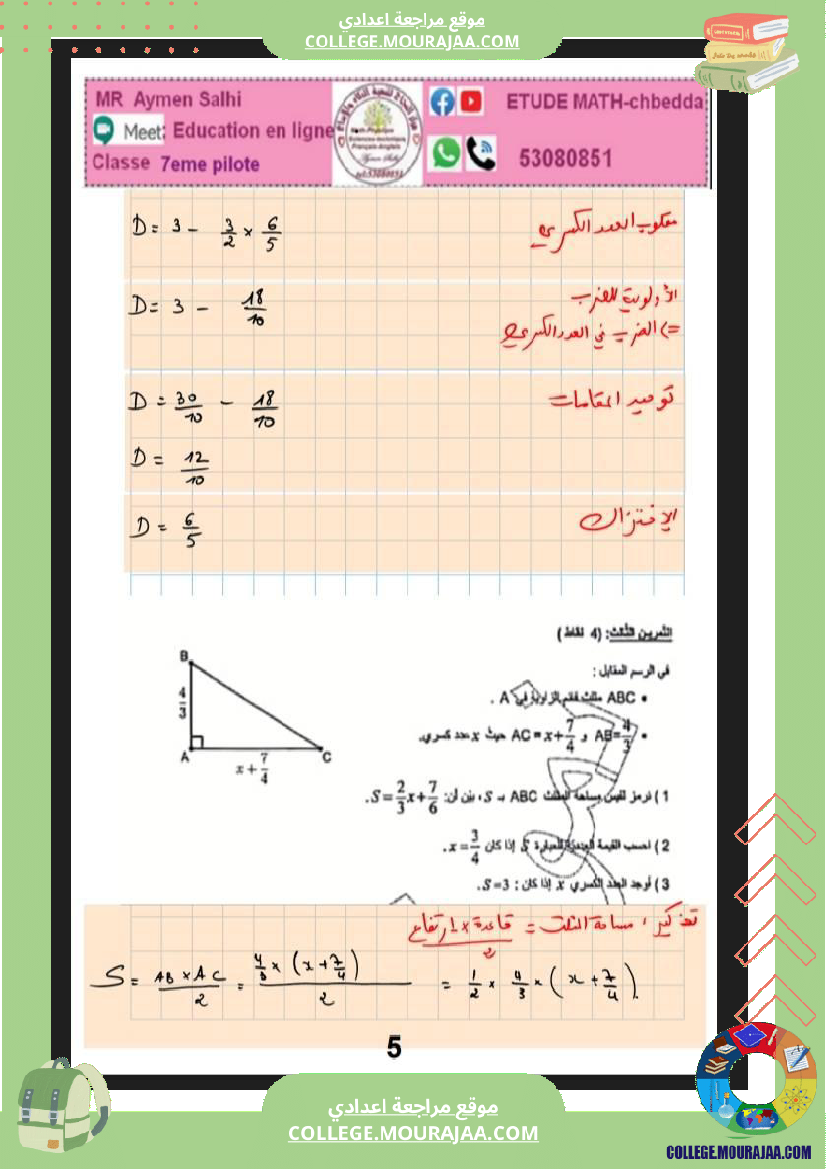 موقع مراجعة اعدادي
COLLEGE.MOURAJAA.COM
MR Aymen Salhi
Meet: Education en ligne
Classe 7eme pilote
ETUDE MATH-chbedda
53080851
D = 3 - 3/2 × 6/5
مقلوب العدد الكسري
D = 3 - 18/10
الأولوية للضرب
=> الضرب في العدد الكسري
D = 30/10 - 18/10
توحيد المقامات
D = 12/10
D = 6/5
الإختزال
التمرين الثالث: (4 نقاط)
في الرسم المقابل :
• ABC مثلث قائم الزاوية في A .
• AB=4/3 و AC=x+7/4 حيث x عدد كسري.
B
4/3
A
C
x+7/4
1) نرمز لقيس مساحة المثلث ABC بـ S، بين أن: S=2/3x+7/6.
2) احسب القيمة العددية للعبارة S إذا كان x=3/4.
3) أوجد العدد الكسري x إذا كان : S=3.
تذكير: مساحة المثلث = قاعدة × ارتفاع / 2
S = AB×AC/2 = 4/3×(x+7/4)/2 = 1/2 × 4/3 × (x+7/4).
5
موقع مراجعة اعدادي
COLLEGE.MOURAJAA.COM
COLLEGE.MOURAJAA.COM